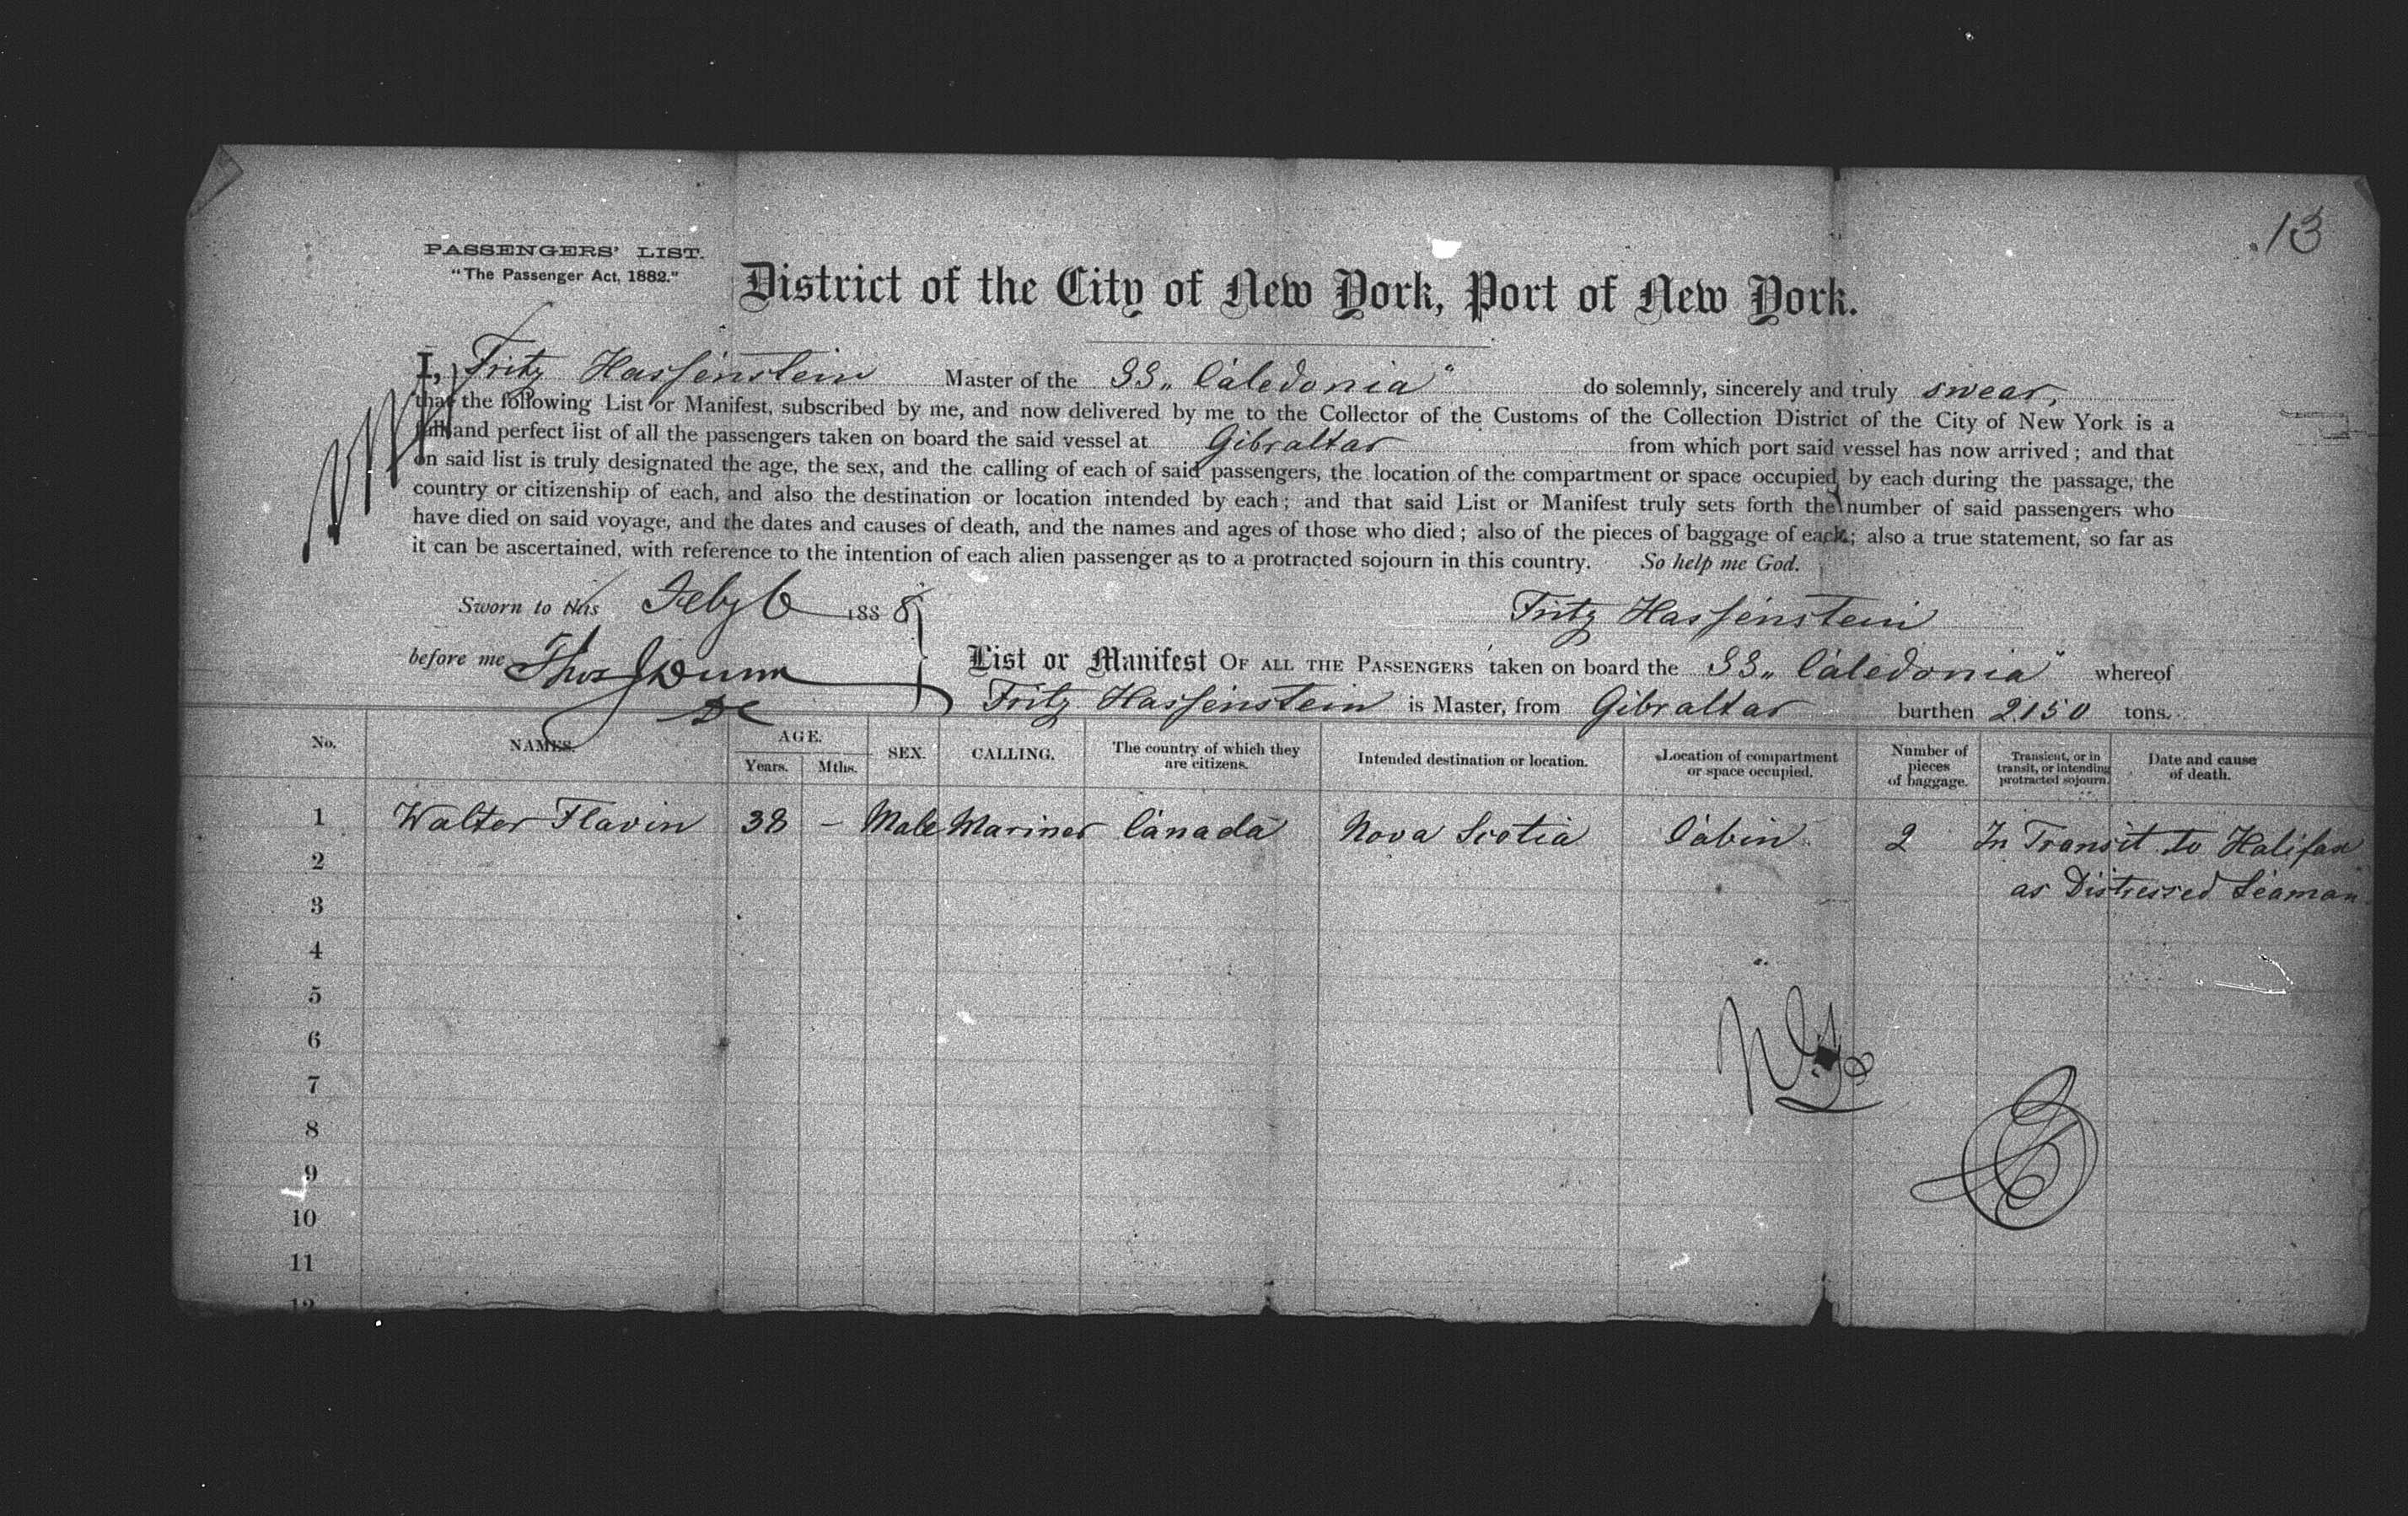 13
PASSENGERS' LIST.
"The Passenger Act, 1882."
District of the City of New York, Port of New York.
I, Fritz Hassenstein Master of the SS. "Caledonia" do solemnly, sincerely and truly swear,
that the following List or Manifest, subscribed by me, and now delivered by me to the Collector of the Customs of the Collection District of the City of New York is a
full and perfect list of all the passengers taken on board the said vessel at Gibraltar from which port said vessel has now arrived; and that
on said list is truly designated the age, the sex, and the calling of each of said passengers, the location of the compartment or space occupied by each during the passage, the
country or citizenship of each, and also the destination or location intended by each; and that said List or Manifest truly sets forth the number of said passengers who
have died on said voyage, and the dates and causes of death, and the names and ages of those who died; also of the pieces of baggage of each; also a true statement, so far as
it can be ascertained, with reference to the intention of each alien passenger as to a protracted sojourn in this country. So help me God.
Sworn to this Feby 6 1888 Fritz Hassenstein
before me Thos J Dunn List or Manifest OF ALL THE PASSENGERS taken on board the SS. "Caledonia" whereof
DC Fritz Hassenstein is Master, from Gibraltar burthen 2150 tons.
No. NAMES. AGE. Years. Mths. SEX. CALLING. The country of which they are citizens. Intended destination or location. Location of compartment or space occupied. Number of pieces of baggage. Transient, or in transit, or intending protracted sojourn. Date and cause of death.
1 Walter Flavin 38 – Male Mariner Canada Nova Scotia Cabin 2 In Transit to Halifax
as Distressed Seaman
2
3
4
5
6
7
8
9
10
11
12